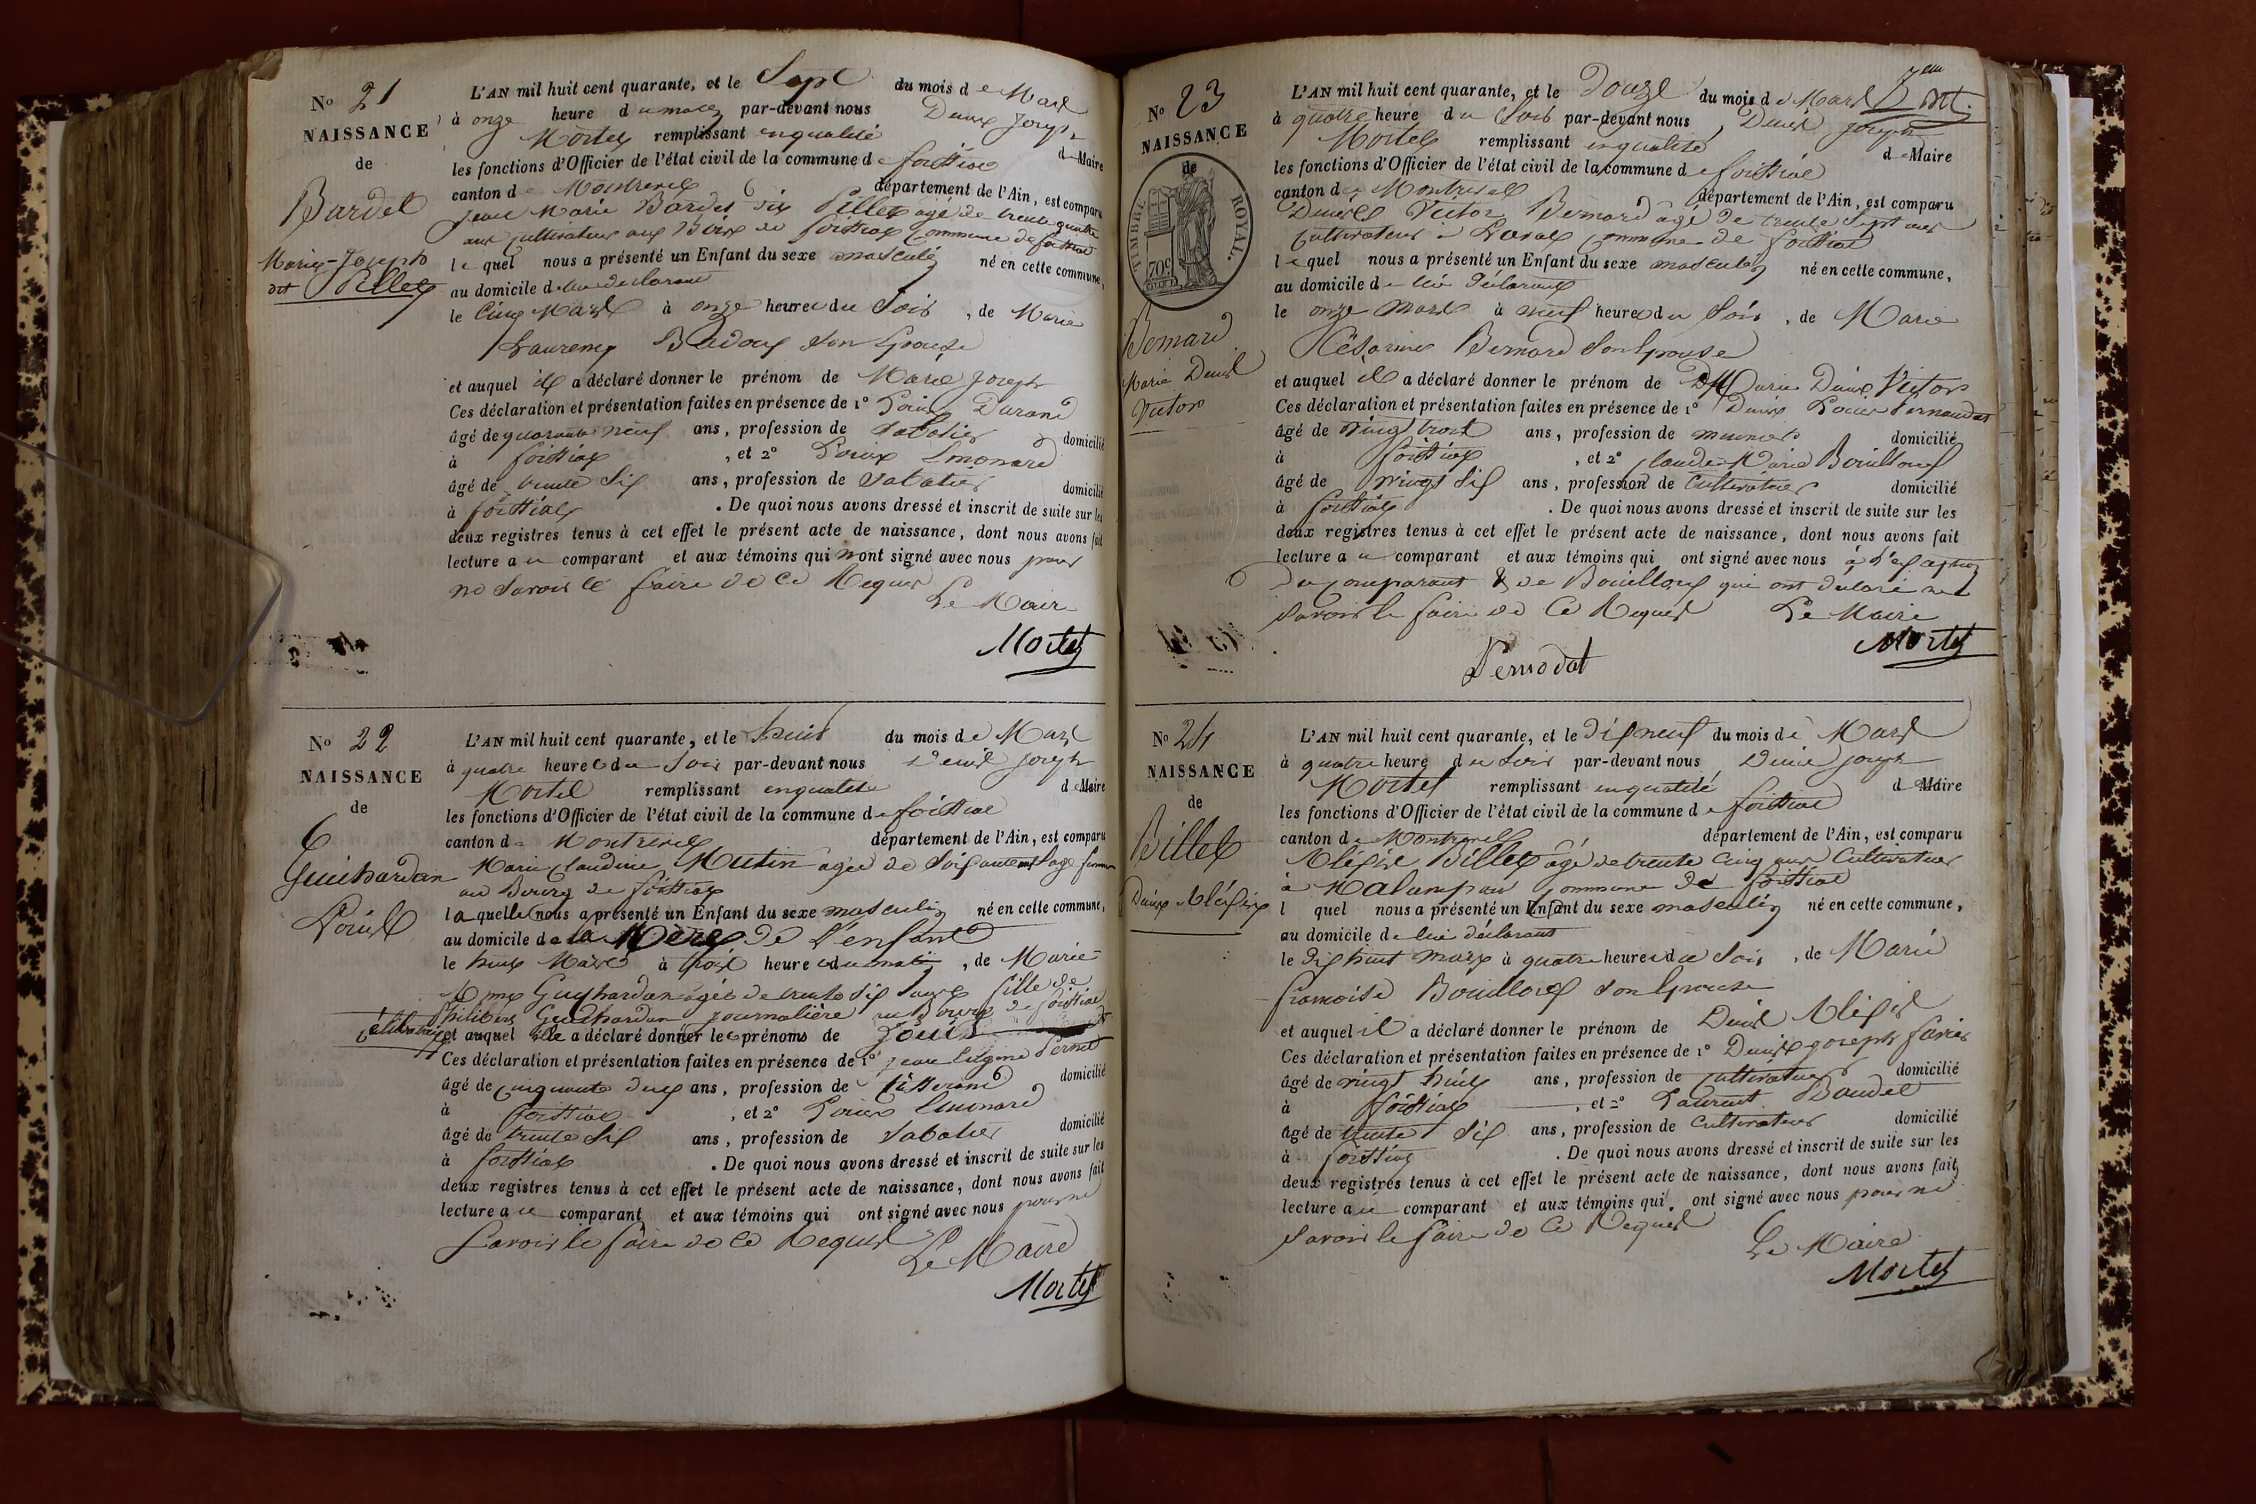 No 21
NAISSANCE
de
Bardet
Marie-Joseph
dit Pillet
L'AN mil huit cent quarante, et le Sept du mois de Mars
à onze heure du matin par-devant nous Denis Joseph
Mortel remplissant en qualité de Maire
les fonctions d'Officier de l'état civil de la commune de foissiat
canton de Montrevel département de l'Ain, est comparu
Jean Marie Bardet dit Pillet âgé de trente quatre
ans cultivateur aux Bois de foissiat Commune de foissiat
lequel nous a présenté un Enfant du sexe masculin né en cette commune,
au domicile de lui déclarant
le Cinq Mars à onze heure du Soir, de Marie
Laurence son Epouse
et auquel il a déclaré donner le prénom de Marie Joseph
Ces déclaration et présentation faites en présence de 1º Louis Durand
âgé de quarante neuf ans, profession de Sabotier domicilié
à foissiat, et 2º Louis Emonard
âgé de trente Six ans, profession de Sabotier domicilié
à foissiat. De quoi nous avons dressé et inscrit de suite sur les
deux registres tenus à cet effet le présent acte de naissance, dont nous avons fait
lecture au comparant et aux témoins qui n'ont signé avec nous pour
ne Savoir le faire de ce Requis Le Maire
Mortel
No 22
NAISSANCE
de
Guichardan
Louis
L'AN mil huit cent quarante, et le huit du mois de Mars
à quatre heure du Soir par-devant nous Denis Joseph
Mortel remplissant en qualité de Maire
les fonctions d'Officier de l'état civil de la commune de foissiat
canton de Montrevel département de l'Ain, est comparu
Marie Claudine Mutin âgée de Soixante ans Sage femme
au Bourg de foissiat
laquelle nous a présenté un Enfant du sexe masculin né en cette commune,
au domicile de la Mère de l'enfant
le huit Mars à trois heure du matin, de Marie
Guichardan âgée de trente Six ans fille de
Philibert Guichardan journalière au Bourg de foissiat
célibataire et auquel elle a déclaré donner le prénoms de Louis
Ces déclaration et présentation faites en présence de 1º Jean
âgé de cinquante deux ans, profession de Tisserand domicilié
à foissiat, et 2º Louis Emonard
âgé de trente Six ans, profession de Sabotier domicilié
à foissiat. De quoi nous avons dressé et inscrit de suite sur les
deux registres tenus à cet effet le présent acte de naissance, dont nous avons fait
lecture au comparant et aux témoins qui ont signé avec nous pour ne
Savoir le faire de ce Requis Le Maire
Mortel
7em
No 23
NAISSANCE
de
TIMBRE ROYAL.
70c
Bernard
Marie Denis
Victor
L'AN mil huit cent quarante, et le Douze du mois de Mars
à quatre heure du Soir par-devant nous Denis Joseph
Mortel remplissant en qualité de Maire
les fonctions d'Officier de l'état civil de la commune de foissiat
canton de Montrevel département de l'Ain, est comparu
Denis Victor Bernard âgé de trente Sept ans
Cultivateur à Laval Commune de foissiat
lequel nous a présenté un Enfant du sexe masculin né en cette commune,
au domicile de lui Déclarant
le onze Mars à neuf heure du Soir, de Marie
Césarine Bernard Son Epouse
et auquel il a déclaré donner le prénom de Marie Denis Victor
Ces déclaration et présentation faites en présence de 1º Denis Louis Pernodat
âgé de Vingt trois ans, profession de meunier domicilié
à foissiat, et 2º Claude Marie Bouilloux
âgé de Vingt Six ans, profession de Cultivateur domicilié
à foissiat. De quoi nous avons dressé et inscrit de suite sur les
deux registres tenus à cet effet le présent acte de naissance, dont nous avons fait
lecture au comparant et aux témoins qui ont signé avec nous à l'exception
du Comparant & de Bouilloux qui ont déclaré ne
Savoir le faire de ce Requis Le Maire
Mortel
Pernodat
No 24
NAISSANCE
de
Billet
Denis Aléxis
L'AN mil huit cent quarante, et le Dix neuf du mois de Mars
à quatre heure du Soir par-devant nous Denis Joseph
Mortel remplissant en qualité de Maire
les fonctions d'Officier de l'état civil de la commune de foissiat
canton de Montrevel département de l'Ain, est comparu
Aléxis Billet âgé de trente Cinq ans Cultivateur
à commune de foissiat
l quel nous a présenté un Enfant du sexe masculin né en cette commune,
au domicile de lui déclarant
le Dix huit mars à quatre heure du Soir, de Marie
françoise Bouilloux Son Epouse
et auquel il a déclaré donner le prénom de Denis Aléxis
Ces déclaration et présentation faites en présence de 1º Denis Joseph
âgé de vingt huit ans, profession de Cultivateur domicilié
à foissiat, et 2º Laurent Baudet
âgé de trente Six ans, profession de Cultivateur domicilié
à foissiat. De quoi nous avons dressé et inscrit de suite sur les
deux registres tenus à cet effet le présent acte de naissance, dont nous avons fait
lecture au comparant et aux témoins qui ont signé avec nous pour ne
Savoir le faire de ce Requis Le Maire
Mortel